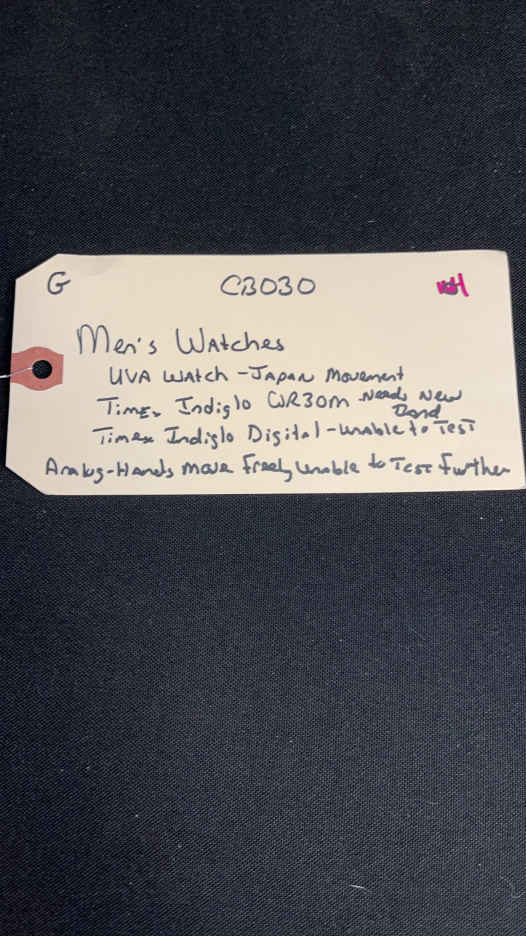 G CB030
Men's Watches
UVA Watch - Japan Movement
Timex Indiglo WR30M Needs New
Band
Timex Indiglo Digital - Unable to Test
Analog - Hands move freely Unable to Test further